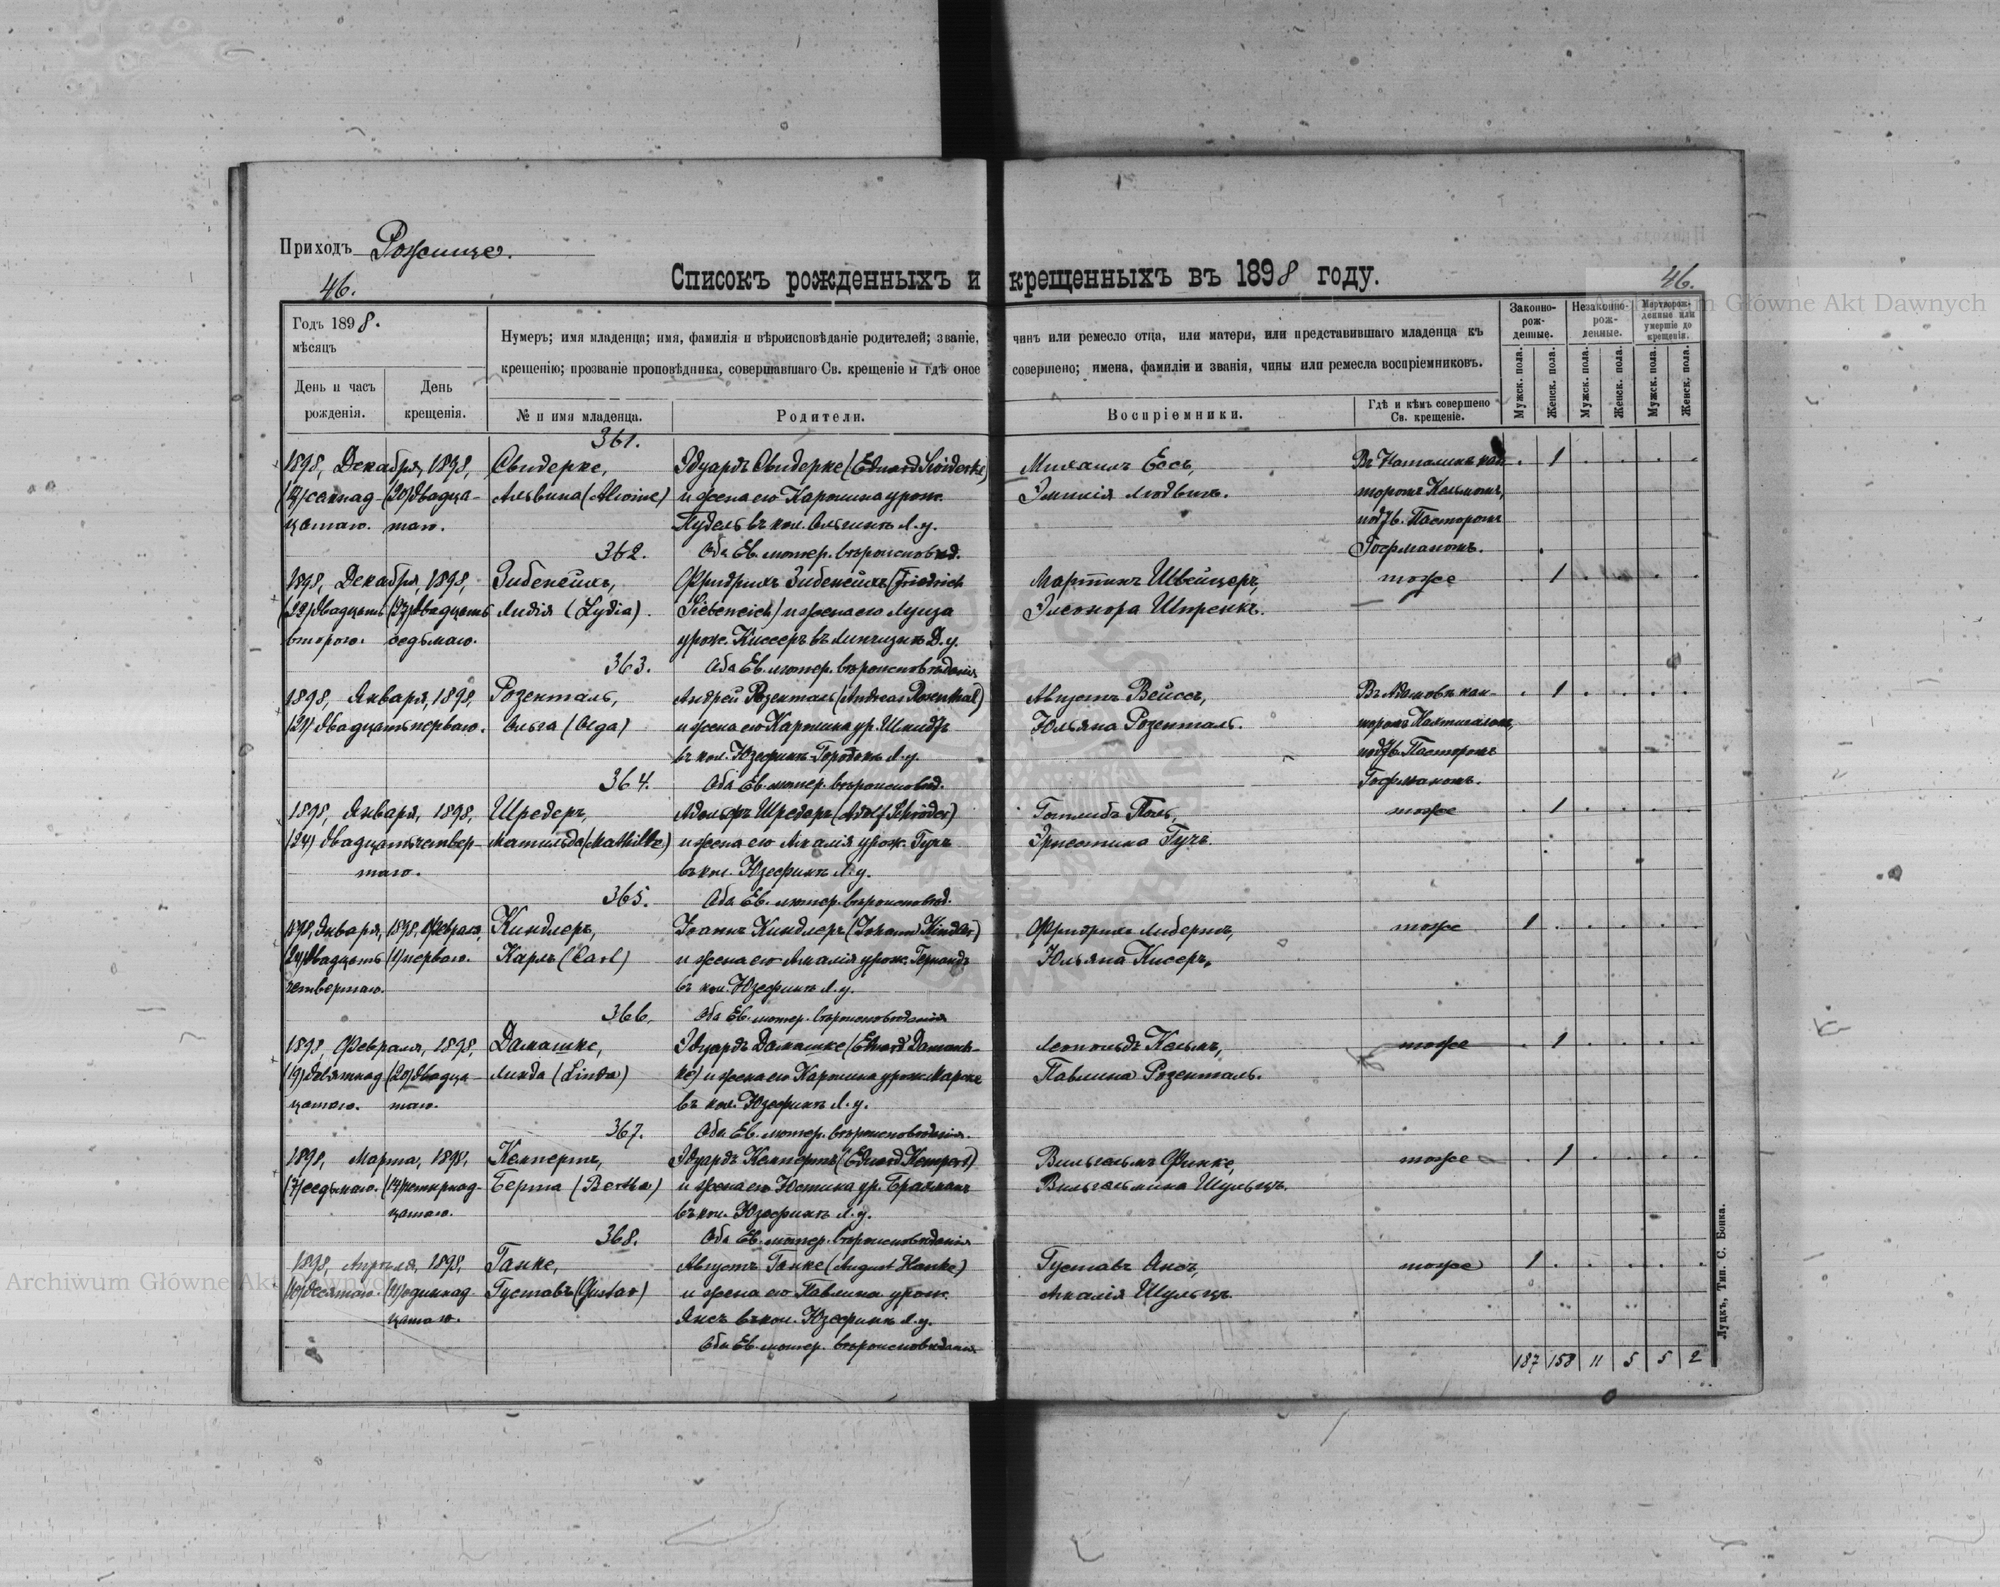 Приходъ Рожище.
46.
Списокъ рожденныхъ и крещенныхъ въ 1898 году.
46.
Годъ 1898.
мѣсяцъ
День и часъ рожденія.
День крещенія.
Нумеръ; имя младенца; имя, фамилія и вѣроисповѣданіе родителей; званіе, чинъ или ремесло отца, или матери, или представившаго младенца къ
крещенію; прозваніе проповѣдника, совершавшаго Св. крещеніе и гдѣ оное совершено; имена, фамиліи и званія, чины или ремесла воспріемниковъ.
№ и имя младенца.
Родители.
Воспріемники.
Гдѣ и кѣмъ совершено Св. крещеніе.
Законно-рож-денные.
Незаконно-рож-денные.
Мертворож-денные или умершіе до крещенія.
Мужск. пола.
Женск. пола.
Мужск. пола.
Женск. пола.
Мужск. пола.
Женск. пола.
361.
1898, Декабря, 1898, Свидерке, Эдуардъ Свидерке (Eduard Swiderke) Михаилъ 1
(20) двадца- Альвина (Alwine) и жена его Каролина урож. Эмилія Людвигъ.
цатаго. таго. въ кол. Л. у. Пасторомъ
Об. Ев. лютер. вѣроисповѣд. Гофманомъ.
362.
1898, Декабря, 1898, Зибенейхъ, Фридрихъ Зибенейхъ (Friedrich Мартинъ Швейцеръ, тоже 1
(22) двадцать (27) двадцать Лидія (Lydia). Siebeneich) и жена его Луиза Элеонора Шпренкъ.
второго. седьмаго. урож. Киссеръ въ
Оба Ев. лютер. вѣроисповѣданія
363.
1898, Января, 1898, Розенталь, Андрей Розенталь (Andreas Rosenthal) Августъ Вейссъ, 1
(21) двадцать перваго. Ольга (Olga) и жена его Каролина ур. Шмидтъ Юльяна Розенталь.
въ кол. Юзефинъ-Городокъ Л. у. Пасторомъ
Оба Ев. лютер. вѣроисповѣд. Гофманомъ.
364.
1898, Января, 1898, Шредеръ, Адольфъ Шредеръ (Adolf Schröder) Готлибъ Поль, тоже 1
(24) двадцать четвер- Матильда (Mathilde) и жена его Амалія урож. Гучъ Эрнестина Гучъ.
таго. въ кол. Юзефинъ Л. у.
Оба Ев. лютер. вѣроисповѣд.
365.
1898, Января, 1898, Февраля, Киндлеръ, Іоаннъ Киндлеръ (Johann Kindler) Фридрихъ Либертъ, тоже 1
(24) двадцать (1) перваго. Карлъ (Carl) и жена его Амалія урож. Юльяна Кисеръ.
четвертаго. въ кол. Юзефинъ Л. у.
Оба Ев. лютер. вѣроисповѣданія
366.
1898, Февраля, 1898, Дамашке, Эдуардъ Дамашке (Eduard Damasch- Леопольдъ Кельмъ, тоже 1
(19) девятнад (20) двадца- Линда (Linda) ke) и жена его Каролина урож. Марске Павлина Розенталь.
цатаго. таго. въ кол. Юзефинъ Л. у.
Оба Ев. лютер. вѣроисповѣданія.
367.
1898, Марта, 1898, Кемпертъ, Эдуардъ Кемпертъ (Eduard Kempert) Вильгельмъ Финке, тоже 1
(7) седьмаго. (14) четырнад- Берта (Bertha) и жена его Юстина ур. Брахманъ Вильгельмина Шульцъ.
цатаго. въ кол. Юзефинъ Л. у.
Оба Ев. лютер. вѣроисповѣданія
368.
1898, Апрѣля, 1898, Ганке, Августъ Ганке (August Hanke) Густавъ Янсъ, тоже 1
(10) десятаго. (11) одиннад- Густавъ (Gustav) и жена его Павлина урож. Амалія Шульцъ.
цатаго. Янсъ въ кол. Юзефинъ Л. у.
Оба Ев. лютер. вѣроисповѣданія
187 158 11 5 5 2
Луцкъ, Тип. С. Бонка.
Archiwum Główne Akt Dawnych
Archiwum Główne Akt Dawnych